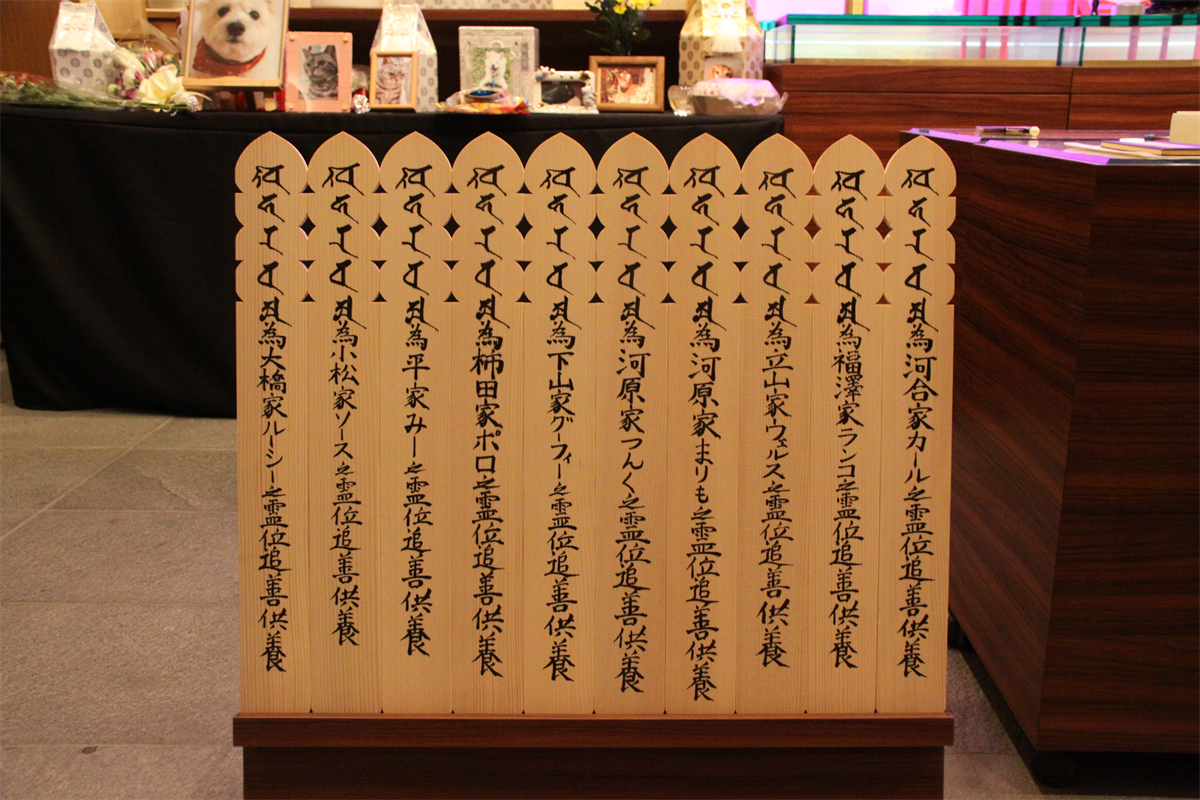 為河合家カール之霊位追善供養
為福澤家ランコ之霊位追善供養
為立山家ウェルス之霊位追善供養
為河原家まりも之霊位追善供養
為河原家つんく之霊位追善供養
為下山家グーフィー之霊位追善供養
為柿田家ポロ之霊位追善供養
為平家みー之霊位追善供養
為小松家ソース之霊位追善供養
為大橋家ルーシー之霊位追善供養